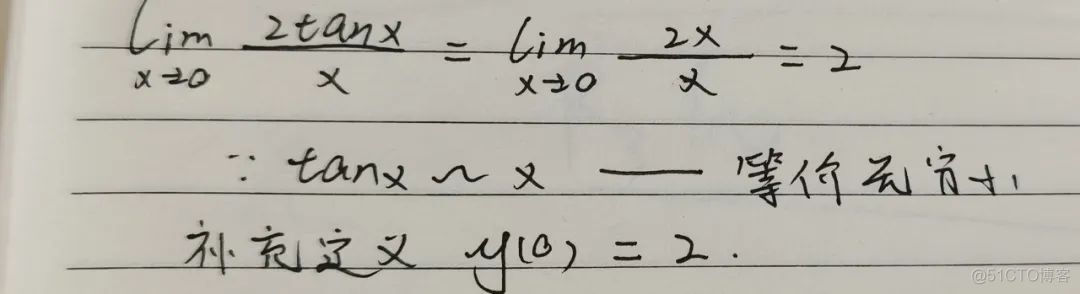 lim x→0 2tanx/x = lim x→0 2x/x = 2
∵ tanx ~ x —— 等价无穷小
补充定义 y(0) = 2.
@51CTO博客